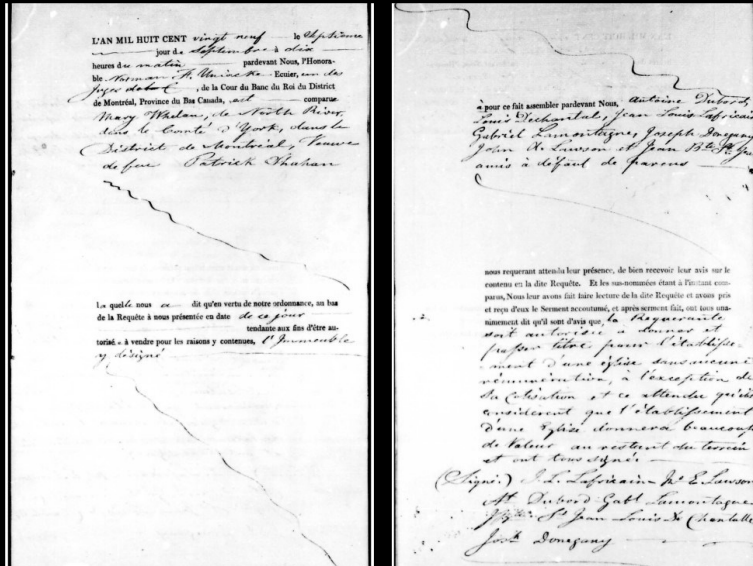 L'AN MIL HUIT CENT vingt neuf le Septieme
jour de Septembre à dix
heures du matin pardevant Nous, l'Honora-
ble Norman F. Uniacke Ecuier, un des
Juges de la C, de la Cour du Banc du Roi du District
de Montréal, Province du Bas Canada, est comparue
Mary Whelan, de North River,
dans le Comté d'York, dans le
District de Montréal, Veuve
de feu Patrick Shahan
La quelle nous a dit qu'en vertu de notre ordonnance, au bas
de la Requête à nous présentée en date de ce jour
tendante aux fins d'être au-
torisée à vendre pour les raisons y contenues, l'Immeuble
y désigné
à pour ce fait assembler pardevant Nous, Antoine Dubord
Louis Dechantal, Jean Louis Lafricain
Gabriel Lamontagne, Joseph Donegany
John E. Lawson et Jean Bte St.
amis à défaut de parens
nous requerant attendu leur présence, de bien recevoir leur avis sur le
contenu en la dite Requête. Et les sus-nommées étant à l'instant com-
parus, Nous leur avons fait faire lecture de la dite Requête et avons pris
et reçu d'eux le Serment accoutumé, et après serment fait, ont tous una-
nimement dit qu'il sont d'avis que, la Requerante
soit autorisée a donner et
passer titre pour l'établisse-
ment d'une église sans aucune
rémunération, à l'exception de
sa Cotisation et ce attendu qu'ils
considerent que l'établissement
d'une Eglise donnera beaucoup
de Valeur au restant du terrein
et ont tous signé.
(Signé.) J. L. Lafricain Jn. E. Lawson
At. Dubord Gabl. Lamontagne
St Jean Louis De Chantalle
Josh. Donegany